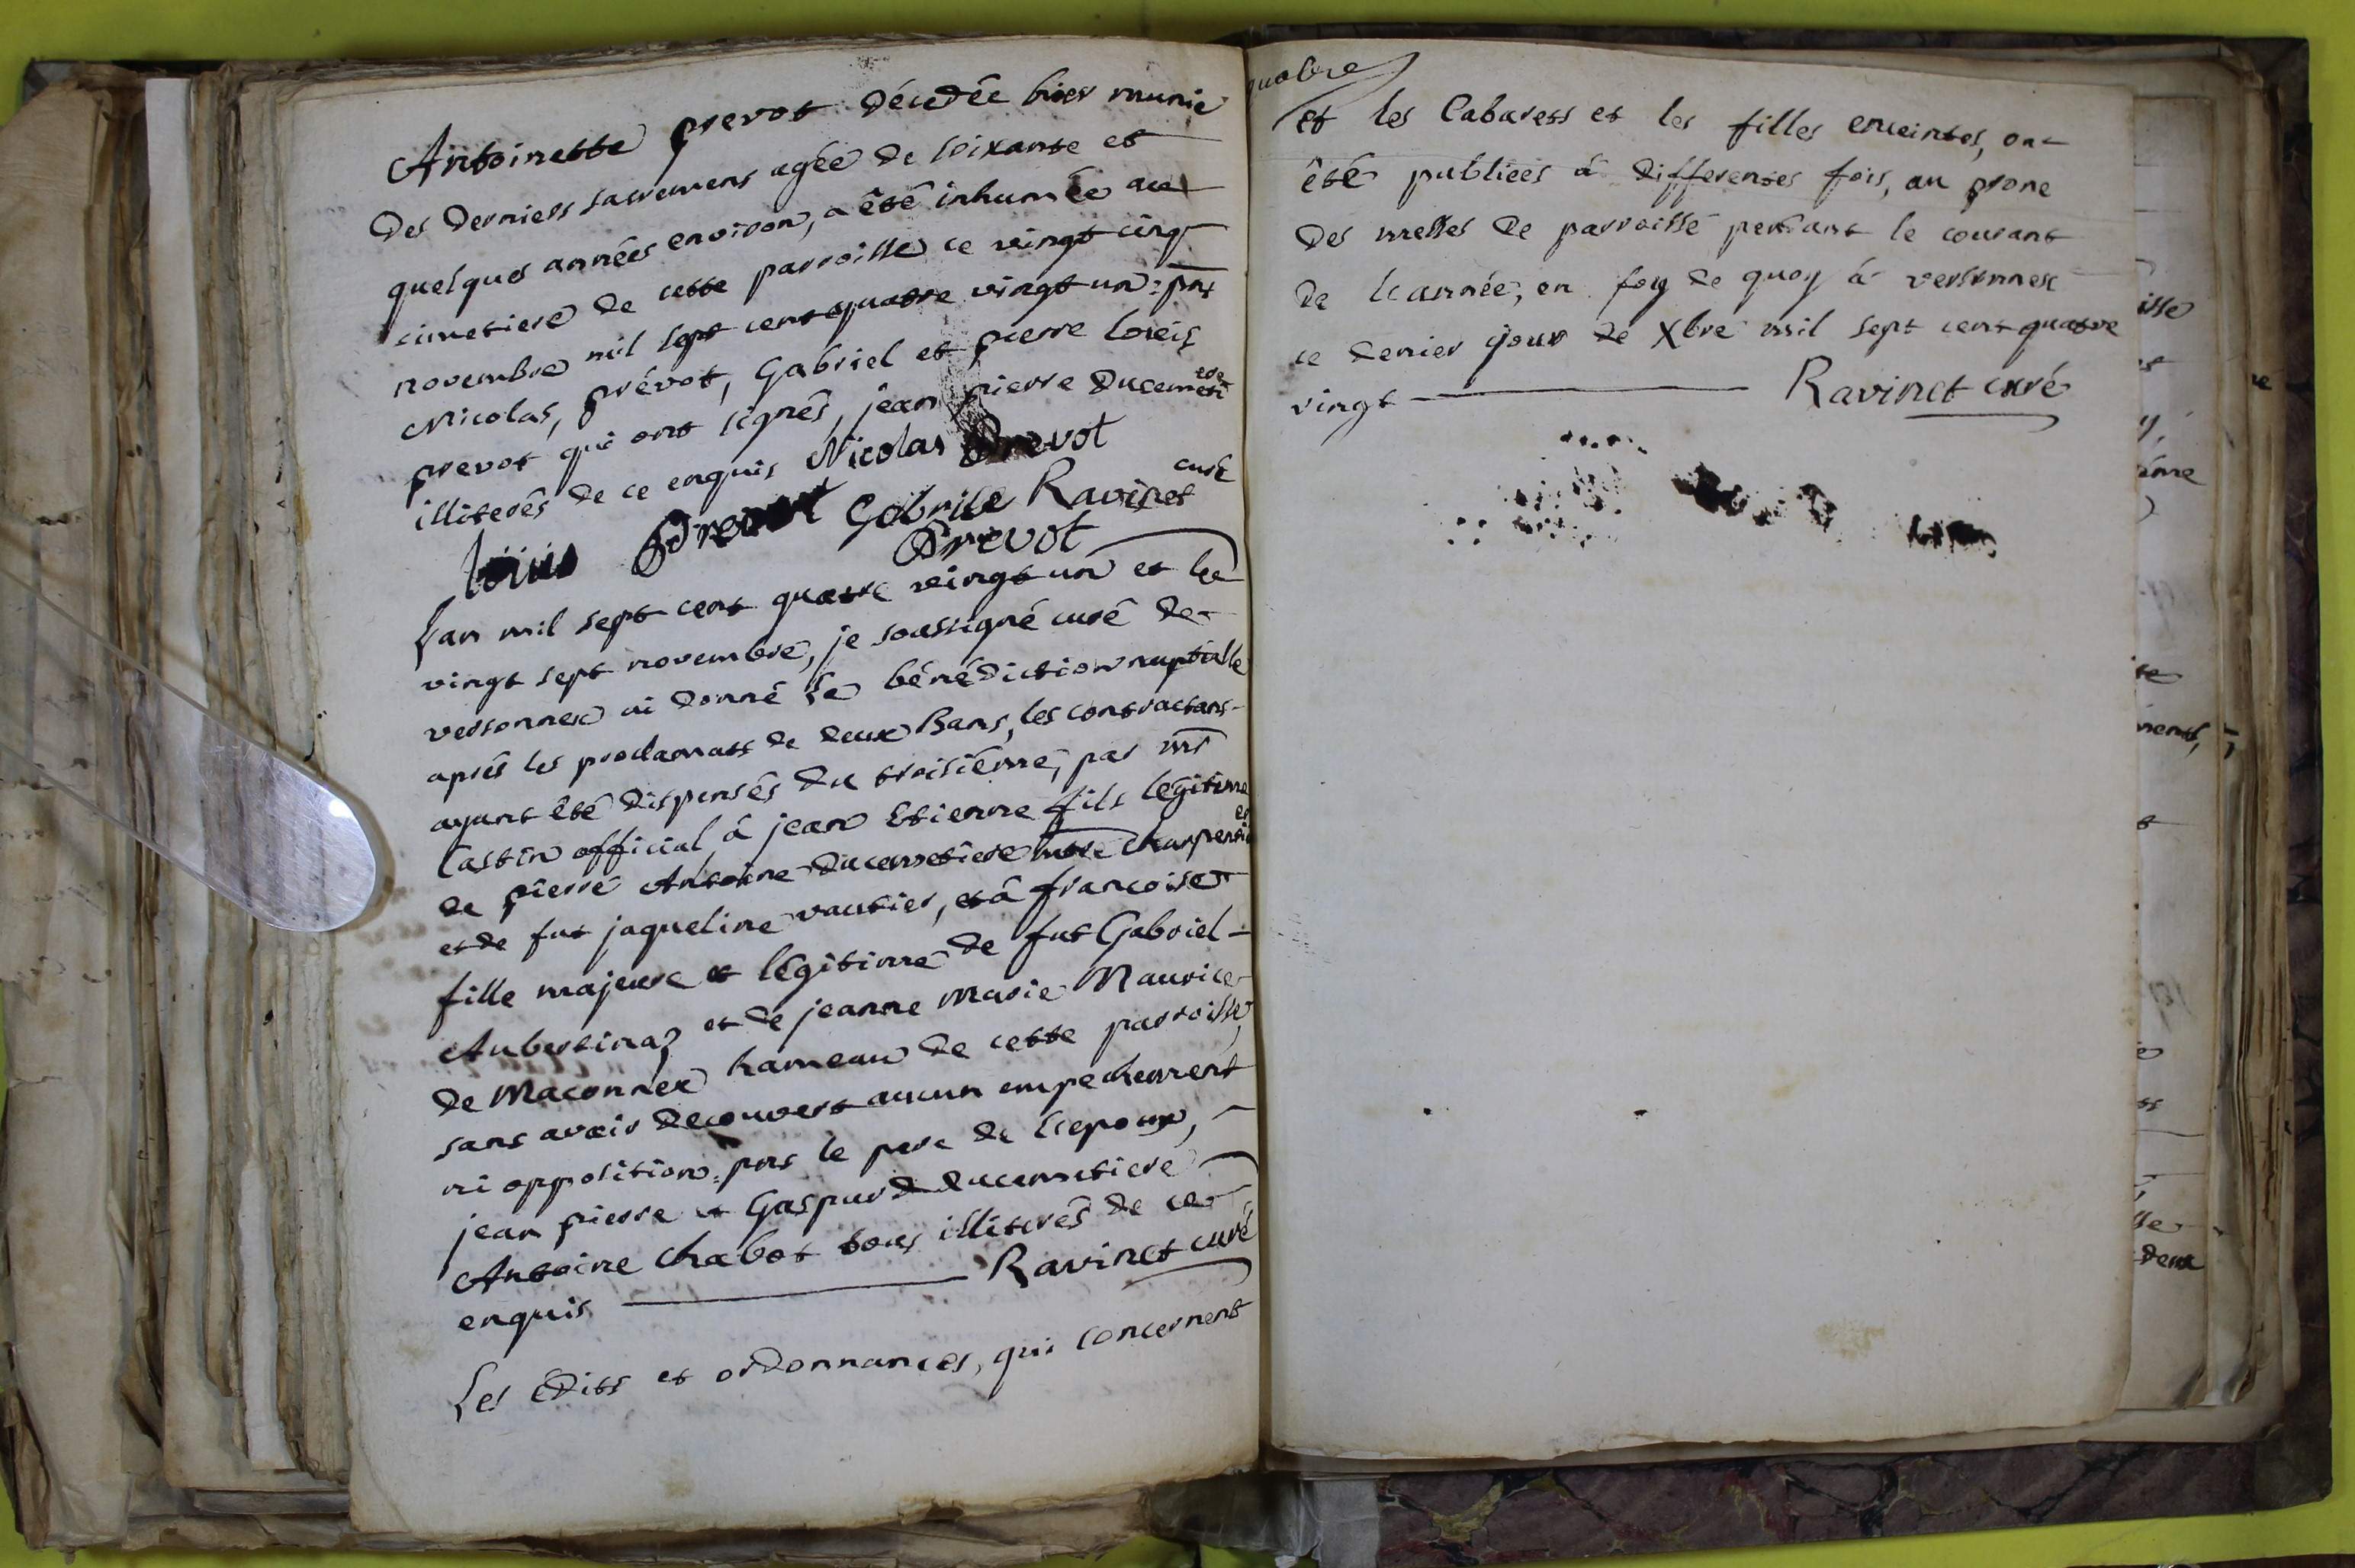 Antoinette prevot décedée hier munie
des derniers sacremens agée de soixante et
quelques années environ, a été inhumée au
cimetiere de cette parroisse ce vingt cinq
novembre mil sept cent quatre vingt un: pnt
Nicolas, prévot, Gabriel et pierre loüis
prevot qui ont signés, jean pierre Ducemetiere
illiterés de ce enquis Nicolas Prevot
Ravinet curé
loüis Prevot Gabrile
Prevot
Lan mil sept cent quatre vingt un et le
vingt sept novembre, je soussigné curé de
versonnex ai donné la bénédiction nuptialle
aprés les proclamats de deux Bans, les contractans
ayant été dispensés du troisiéme, par mr
Castin official à jean Etienne fils légitime
de pierre Antoine Ducemetiere mtre charpentier
et de fut jaqueline vautier, et à francoise
fille majeure et légitime de fut Gabriel
Aubertinaz et de jeanne Marie Maurice
de Maconnex hameau de cette parroisse,
sans avoir decouvert aucun empechement
ni opposition: pns le pere de l'epoux,
jean pierre et Gaspard Ducemetiere
Antoine chabot tous illiterés de ce
enquis Ravinet curé
Les Edits et ordonnances, qui concernent
quatre
et les Cabarets et les filles enceintes, on
été publiées à differentes fois, au prone
des messes de parroisse pendant le courant
de l'année, en foy de quoy à versonnex
ce denier jour de Xbre mil sept cent quatre
vingt Ravinet curé
isse
ément,
deux